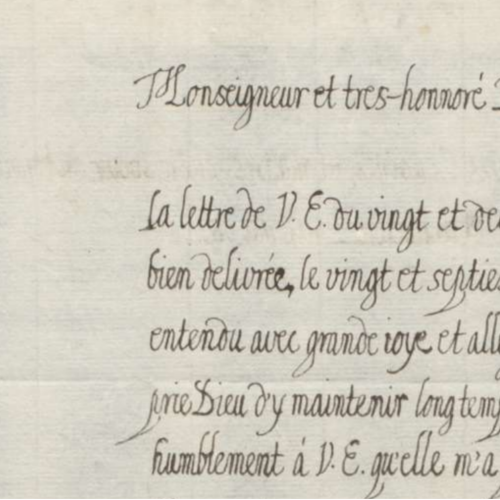 Monseigneur et tres-honnoré
la lettre de V. E. du vingt et de
bien delivrée, le vingt et septie
entendu avec grande ioye et all
prie Dieu d'y maintenir long temp
humblement á V. E. qu'elle m'a